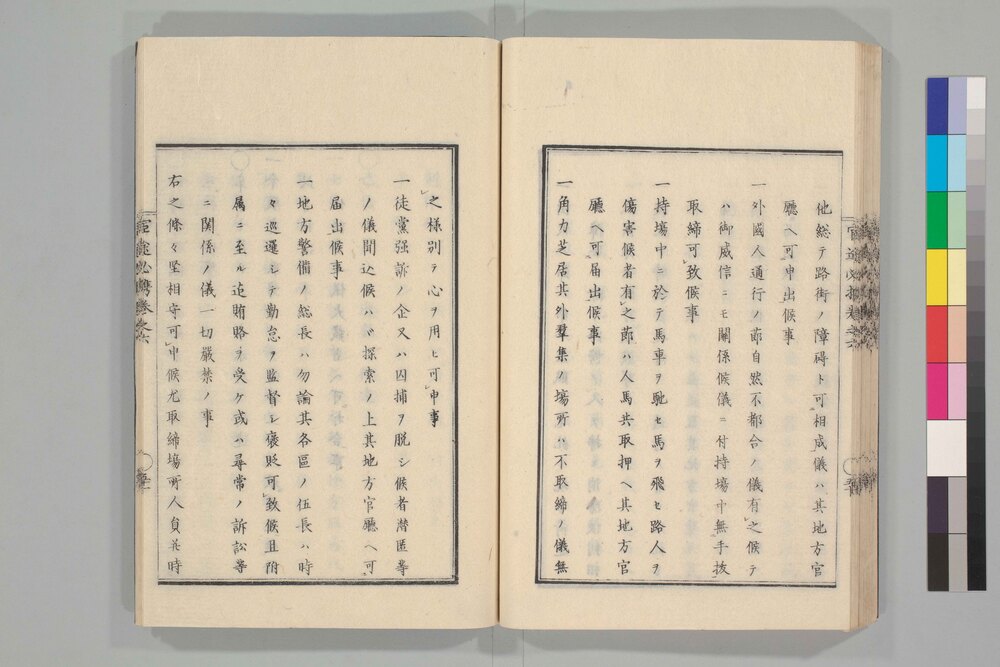 他総テ路街ノ障碍ト可相成儀ハ其地方官
廳ヘ可申出候事
一外國人通行ノ節自然不都合ノ儀有之候テ
ハ御威信ニモ關係候儀ニ付持場中無手抜
取締可致候事
一持場中ニ於テ馬車ヲ馳セ馬ヲ飛セ路人ヲ
傷害候者有之節ハ人馬共取押ヘ其地方官
廳ヘ可届出候事
一角力芝居其外羣集ノ場所ハ不取締ノ儀無
之様別テ心ヲ用ヒ可申事
一徒黨强訴ノ企又ハ囚捕ヲ脱シ候者潜匿等
ノ儀聞込候ハヾ探索ノ上其地方官廳ヘ可
届出候事
一地方警備ノ総長ハ勿論其各區ノ伍長ハ時
々巡邏シテ勤怠ヲ監督シ褒貶可致候且附
属ニ至ル迄賄賂ヲ受ケ或ハ尋常ノ訴訟等
ニ関係ノ儀一切嚴禁ノ事
右之條々堅相守可申候尤取締場所人負并時